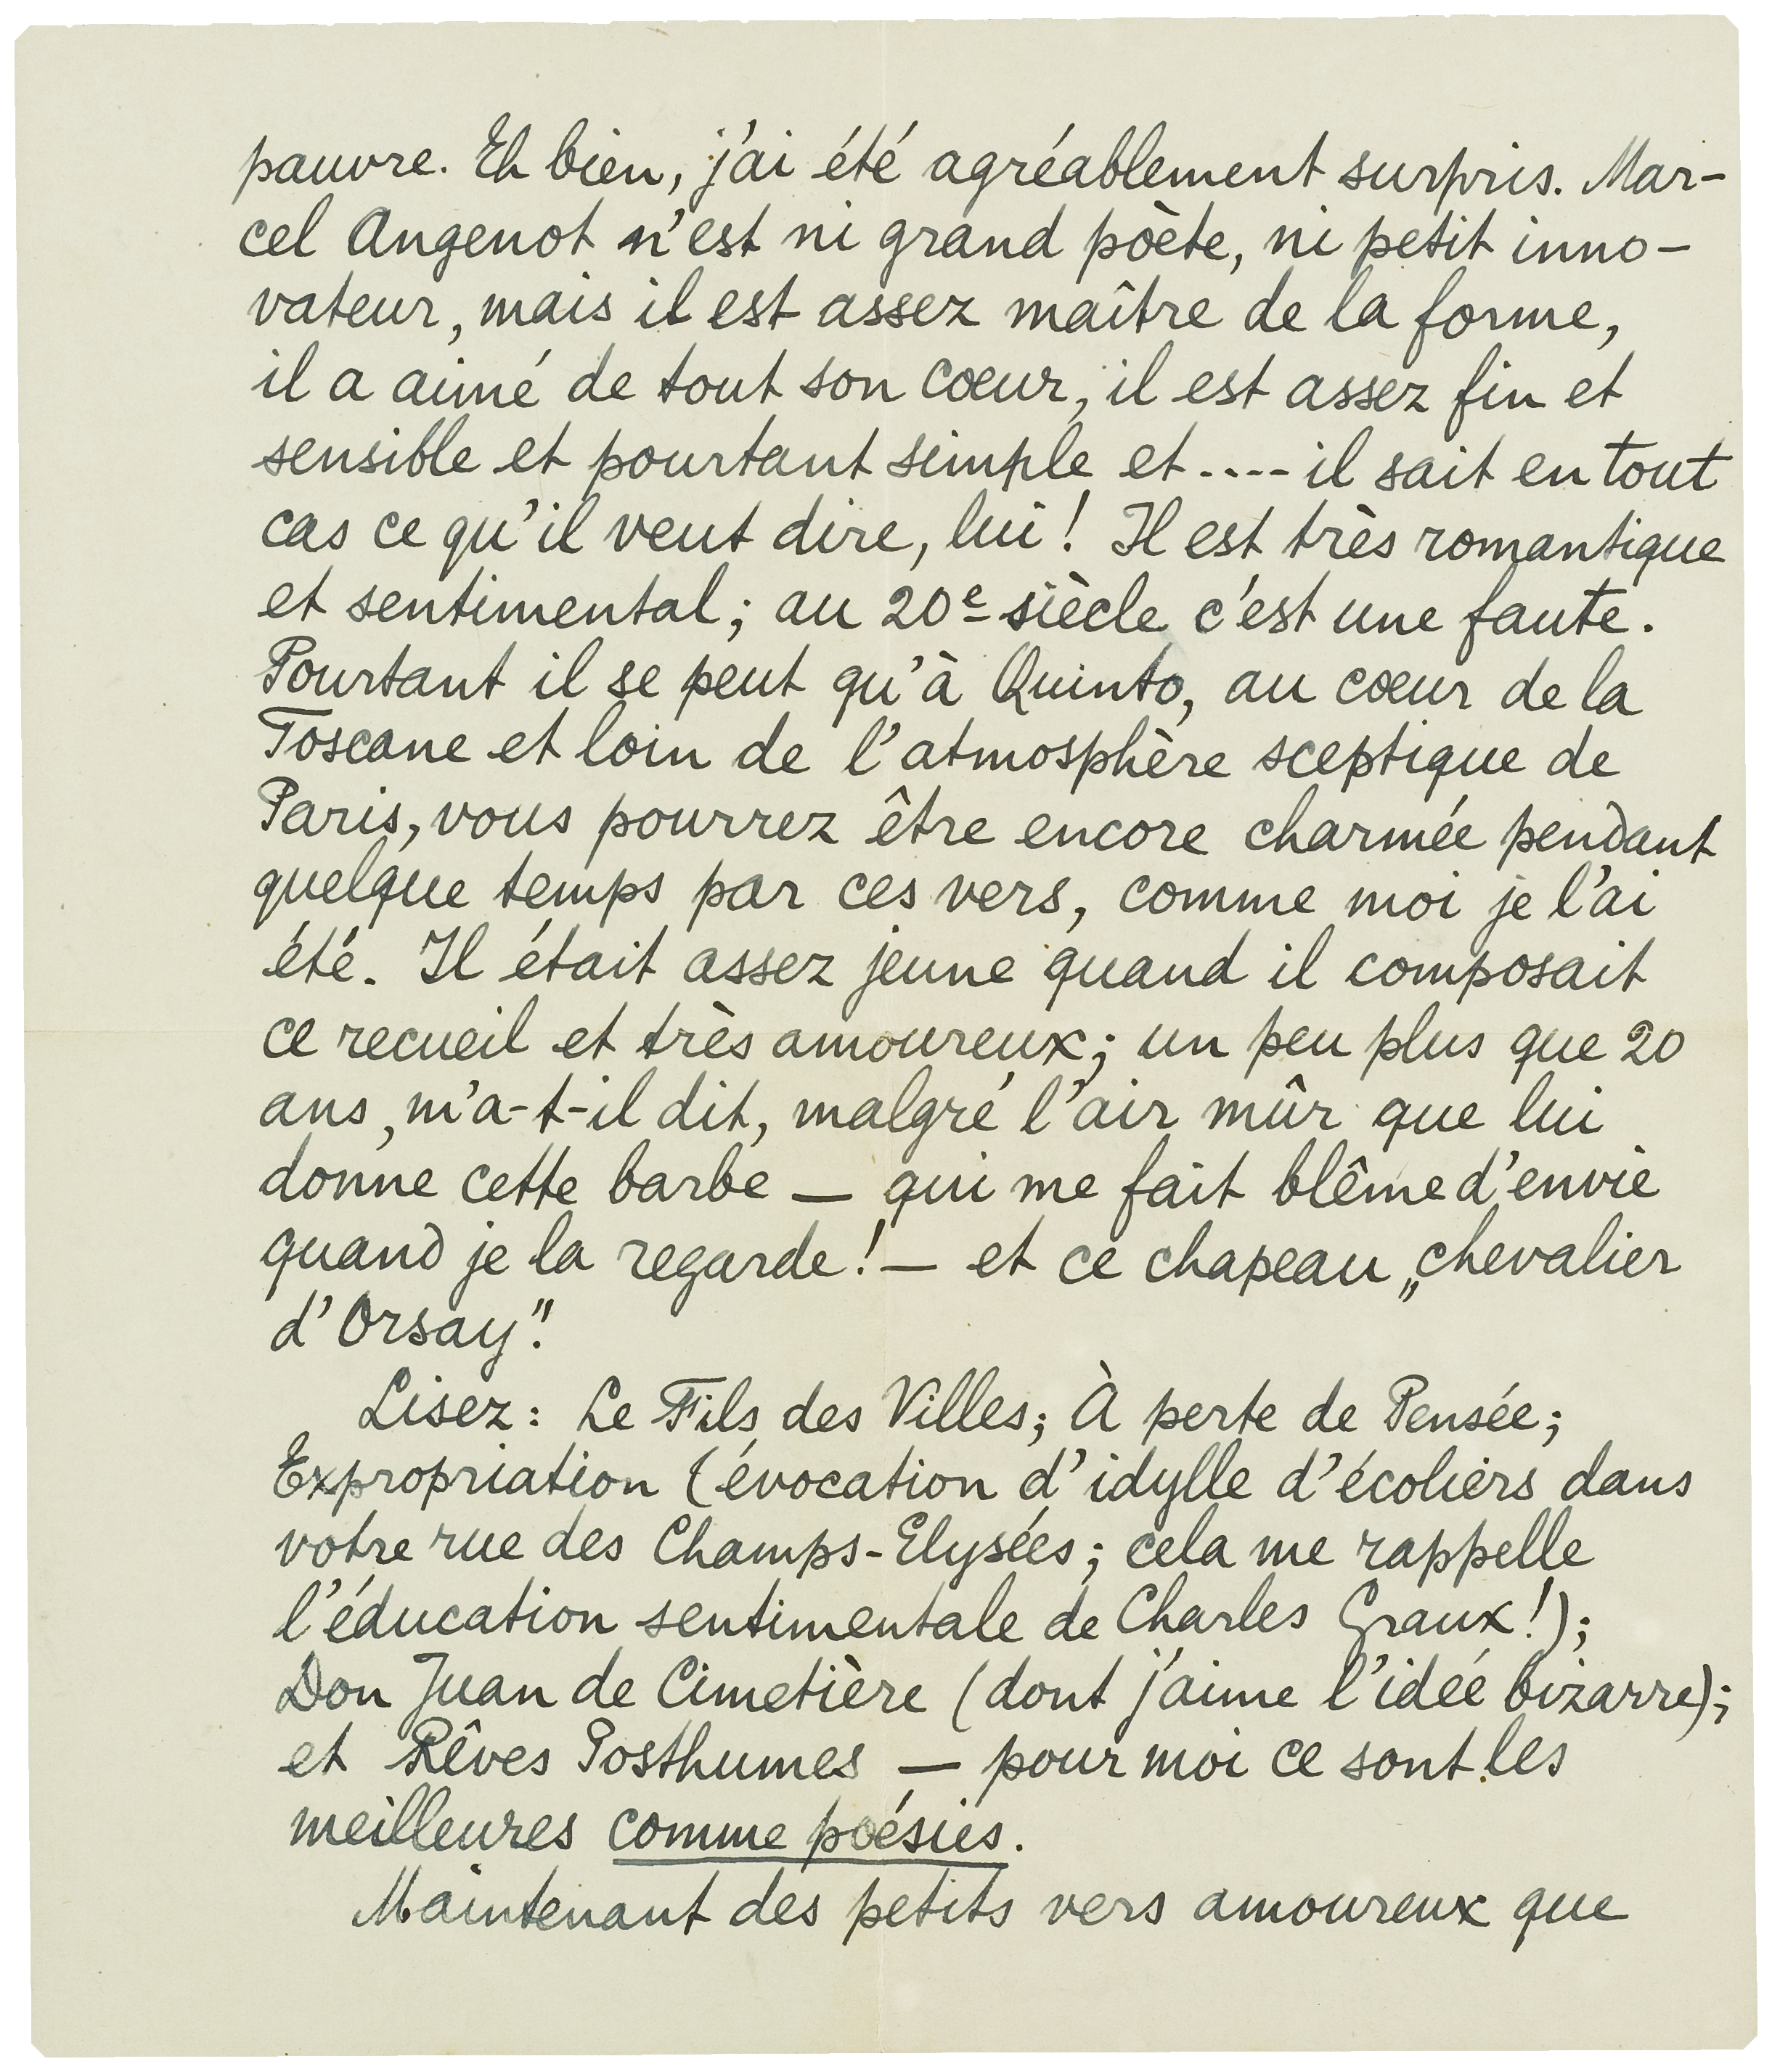 pauvre. Eh bien, j'ai été agréablement surpris. Mar-
cel Angenot n'est ni grand pöète, ni petit inno-
vateur, mais il est assez maître de la forme,
il a aimé de tout son cœur, il est assez fin et
sensible et pourtant simple et .... il sait en tout
cas ce qu'il veut dire, lui! Il est très romantique
et sentimental; au 20e siècle c'est une faute.
Pourtant il se peut qu'à Quinto, au cœur de la
Toscane et loin de l'atmosphère sceptique de
Paris, vous pourrez être encore charmée pendant
quelque temps par ces vers, comme moi je l'ai
été. Il était assez jeune quand il composait
ce recueil et très amoureux; un peu plus que 20
ans, m'a-t-il dit, malgré l'air mûr que lui
donne cette barbe — qui me fait blême d'envie
quand je la regarde! — et ce chapeau „chevalier
d'Orsay".
Lisez: Le Fils des Villes; À perte de Pensée;
Expropriation (évocation d'idylle d'écoliers dans
votre rue des Champs-Elysées; cela me rappelle
l'éducation sentimentale de Charles Graux!);
Don Juan de Cimetière (dont j'aime l'idée bizarre);
et Rêves Posthumes — pour moi ce sont les
meilleures comme poésies.
Maintenant des petits vers amoureux que